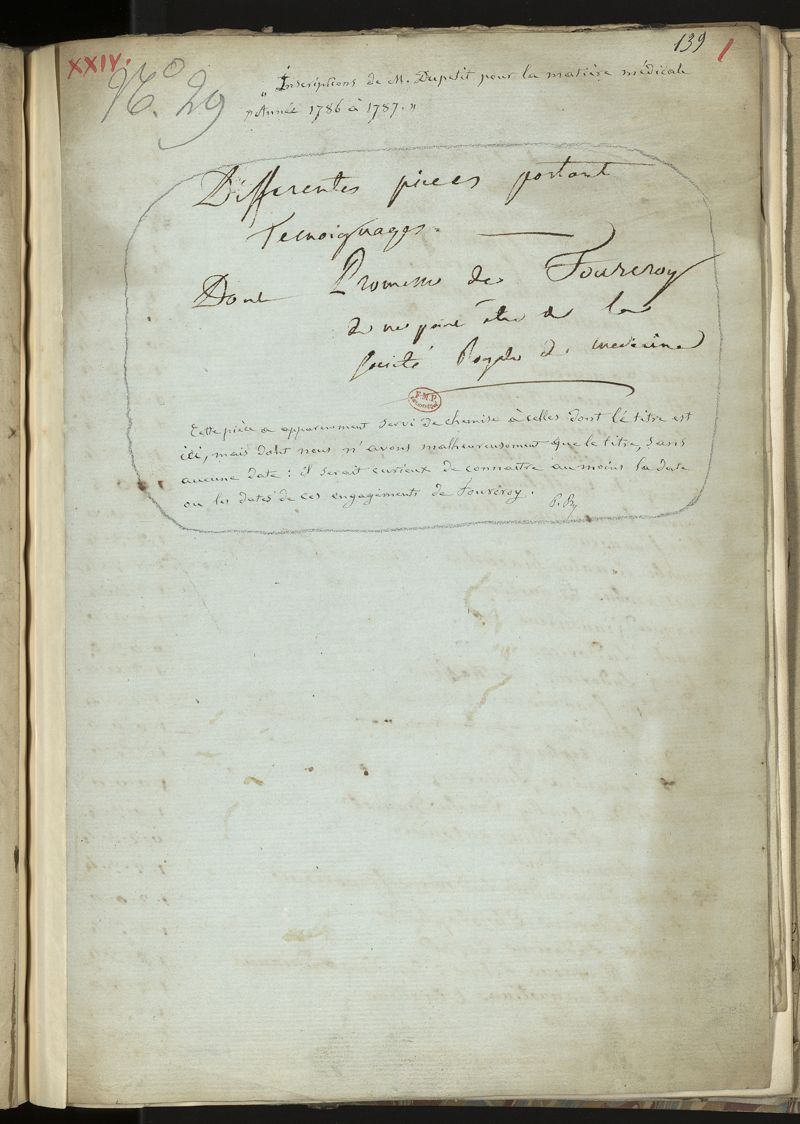 XXIV.
139 1
No. 29
„ Inscriptions de M. Dupetit pour la matière médicale
„ Année 1786 à 1787. „
Differentes pieces portant
Temoignages.
Dont Promesse de Fourcroy
de ne point être de la
société Royale de medecine
F.M.P.
Cette pièce a apparemment servi de chemise à celles dont le titre est
ici, mais dont nous n'avons malheureusement que le titre, sans
aucune date : il serait curieux de connaître au moins la date
ou les dates de ces engagements de Fourcroy.